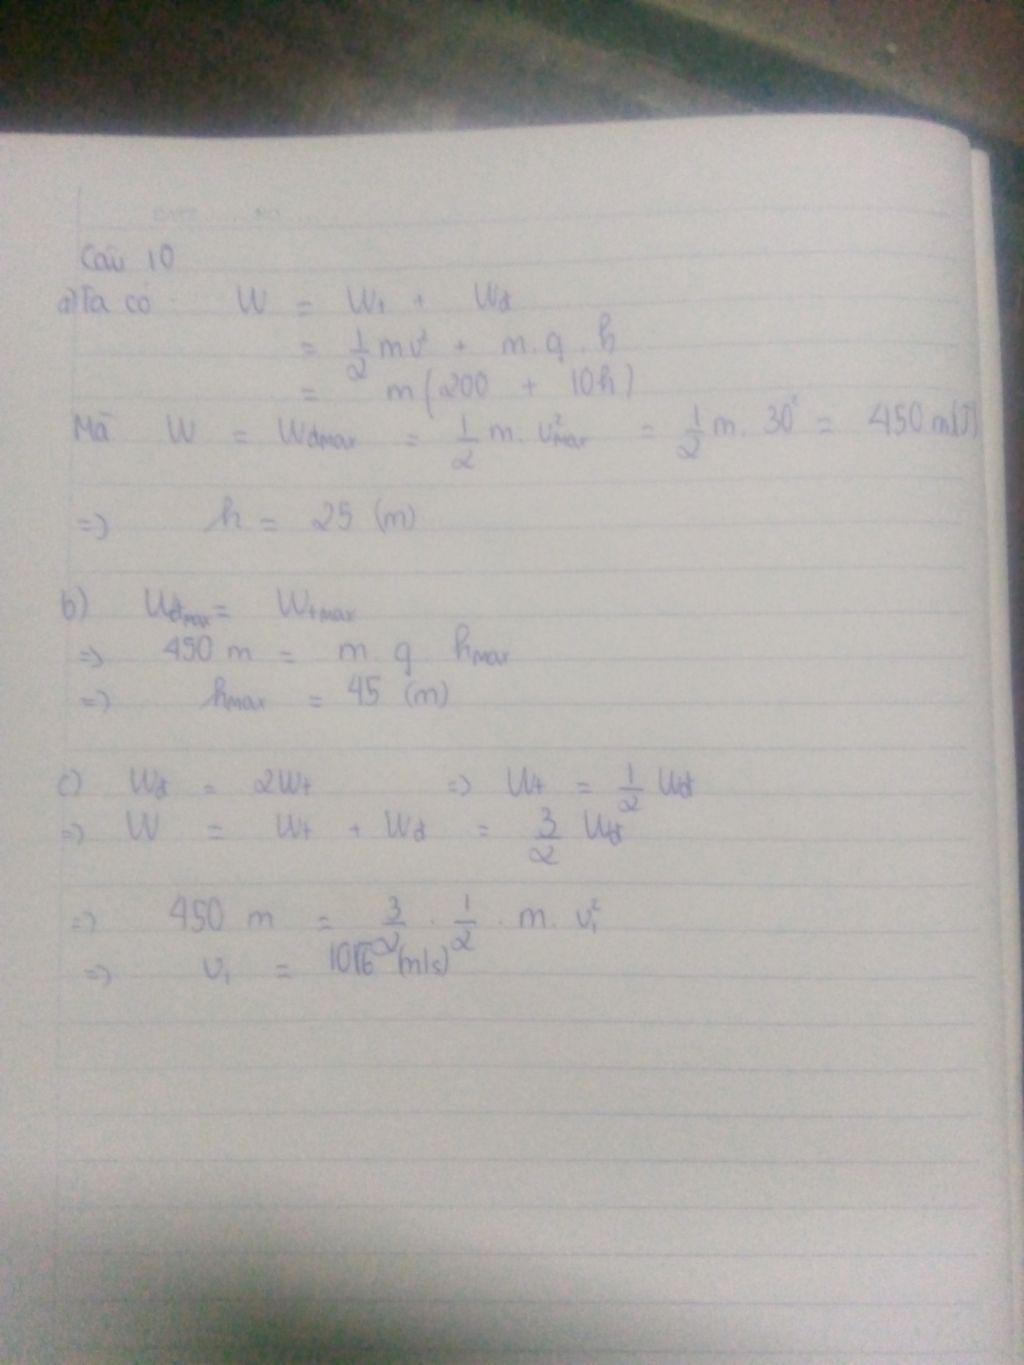 Câu 10
a) Ta có: W = Wt + Wđ
= 1/2 mv² + m.g.h
= m(200 + 10h)
Mà W = Wđmax = 1/2 m.v²max = 1/2 m.30² = 450m(J)
=> h = 25 (m)
b) Wđmax = Wtmax
=> 450 m = m g hmax
=> hmax = 45 (m)
c) Wđ = 2Wt => Wt = 1/2 Wđ
=> W = Wt + Wđ = 3/2 Wđ
=> 450 m = 3/2 . 1/2 . m. v₁²
=> v₁ = 10√6 (m/s)